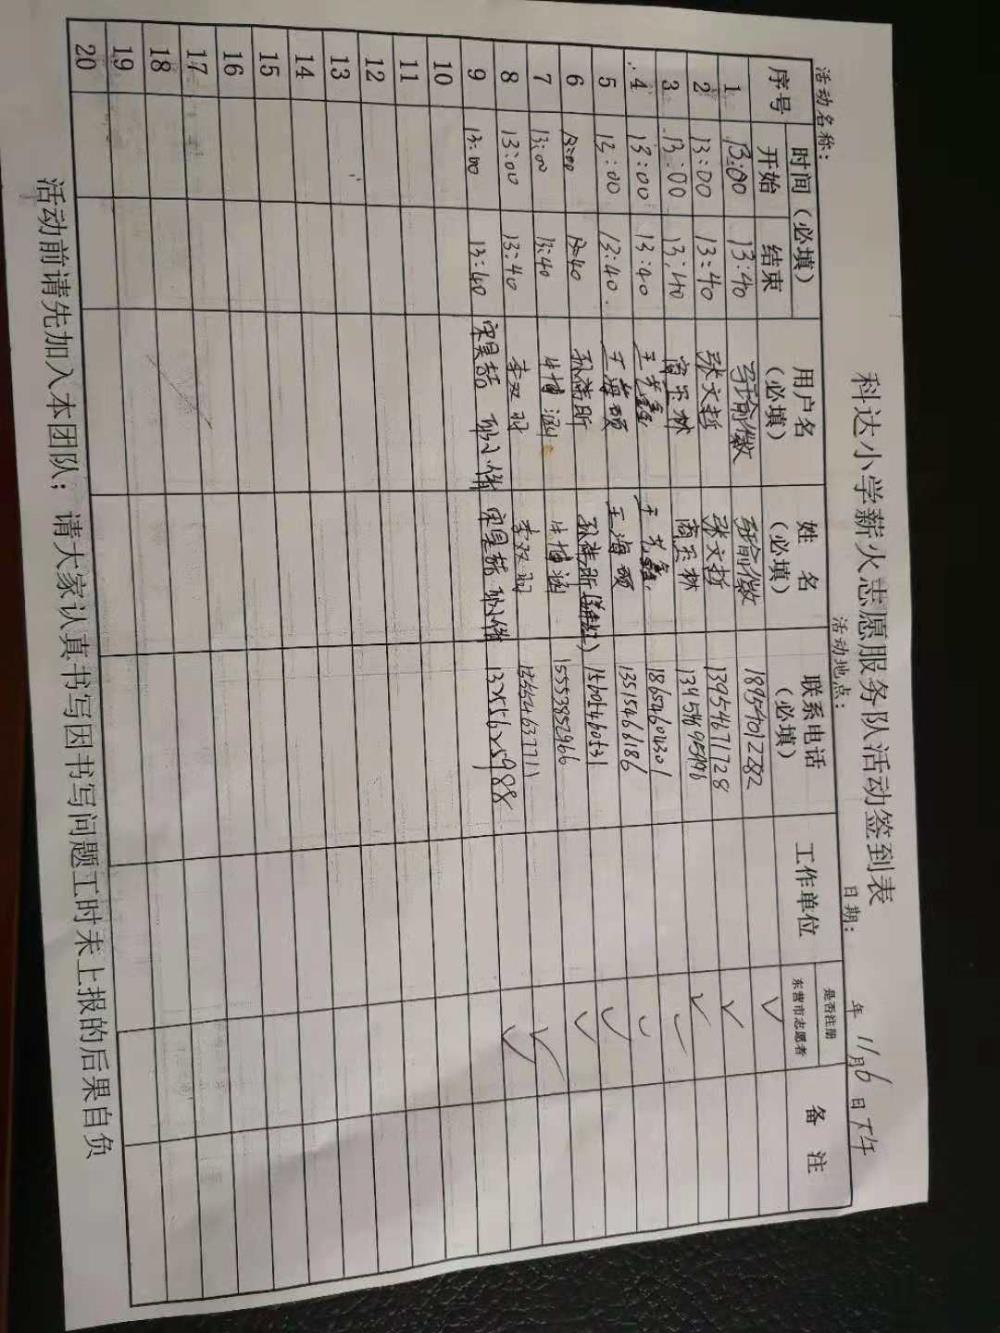 科达小学薪火志愿服务队活动签到表
活动名称： 活动地点： 日期： 年 11月6日下午
序号 时间（必填） 用户名（必填） 姓名（必填） 联系电话（必填） 工作单位 是否注册东营市志愿者 备注
开始 结束
1 13:00 13:40 ✓
2 13:00 13:40 张文哲 张文哲 13954671728 ✓
3 13:00 13:40 商乐林 商乐林 ✓
4 13:00 13:40 王艺鑫 王艺鑫 18654604301 ✓
5 13:00 13:40 王海硕 王海硕 13515466186 ✓
6 13:00 13:40 15605460531 ✓
7 13:00 13:40 牛博涵 牛博涵 15553852966 ✓
8 13:00 13:40 李双羽 李双羽 ✓
9 13:00 13:40 宋昊喆 宋昊喆 13255625988 ✓
10
11
12
13
14
15
16
17
18
19
20
活动前请先加入本团队；请大家认真书写因书写问题工时未上报的后果自负